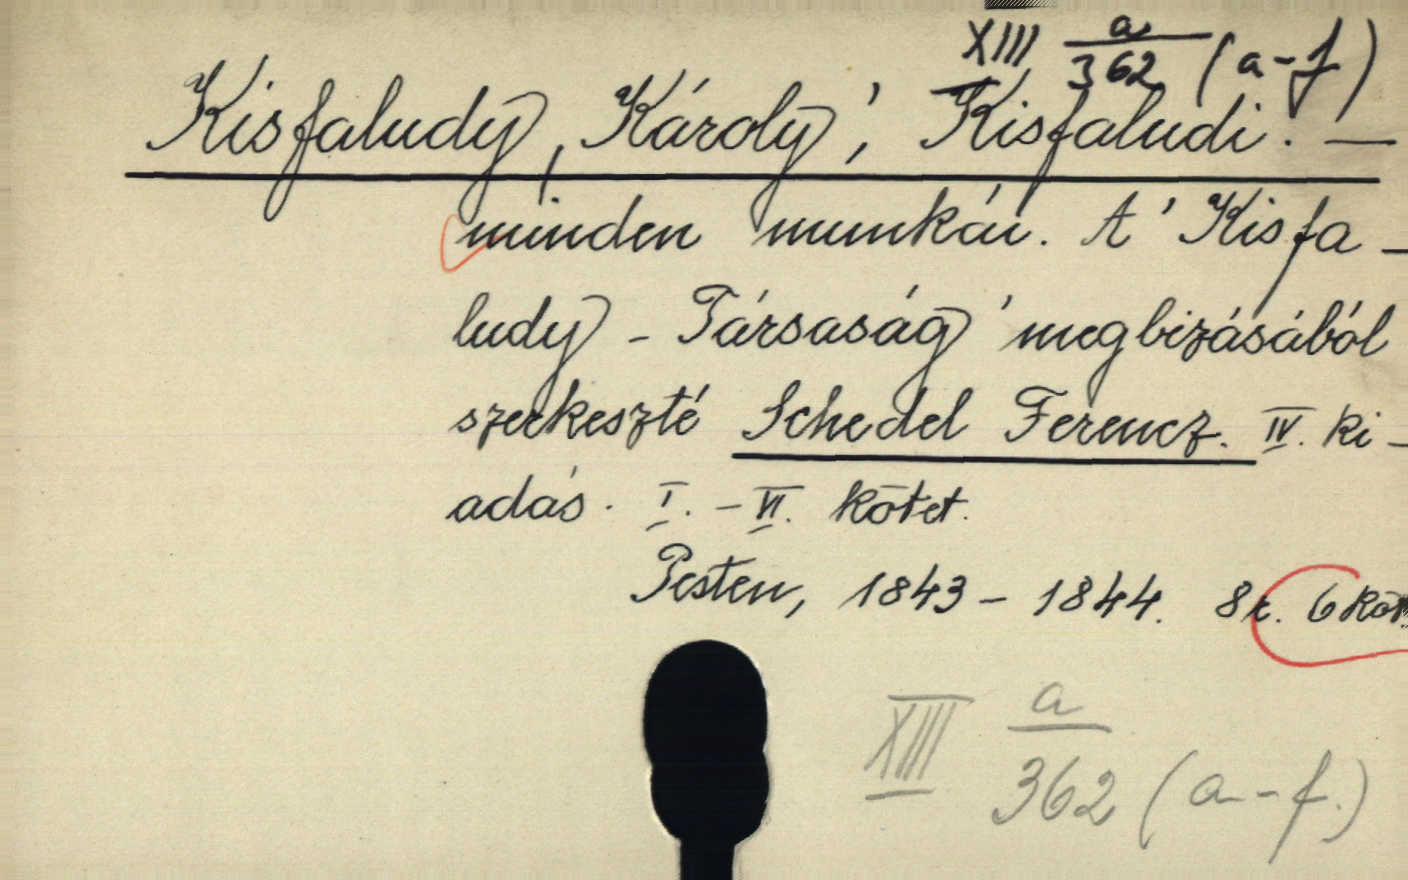 XIII a/362 (a-f)
Kisfaludy, Károly, Kisfaludi. —
minden munkái. A' Kisfa-
ludy - Társaság' megbizásából
szerkeszté Schedel Ferencz. IV. ki-
adás. I. - VI. kötet.
Pesten, 1843 - 1844. 8r. 6 köt.
XIII a/362 (a-f.)